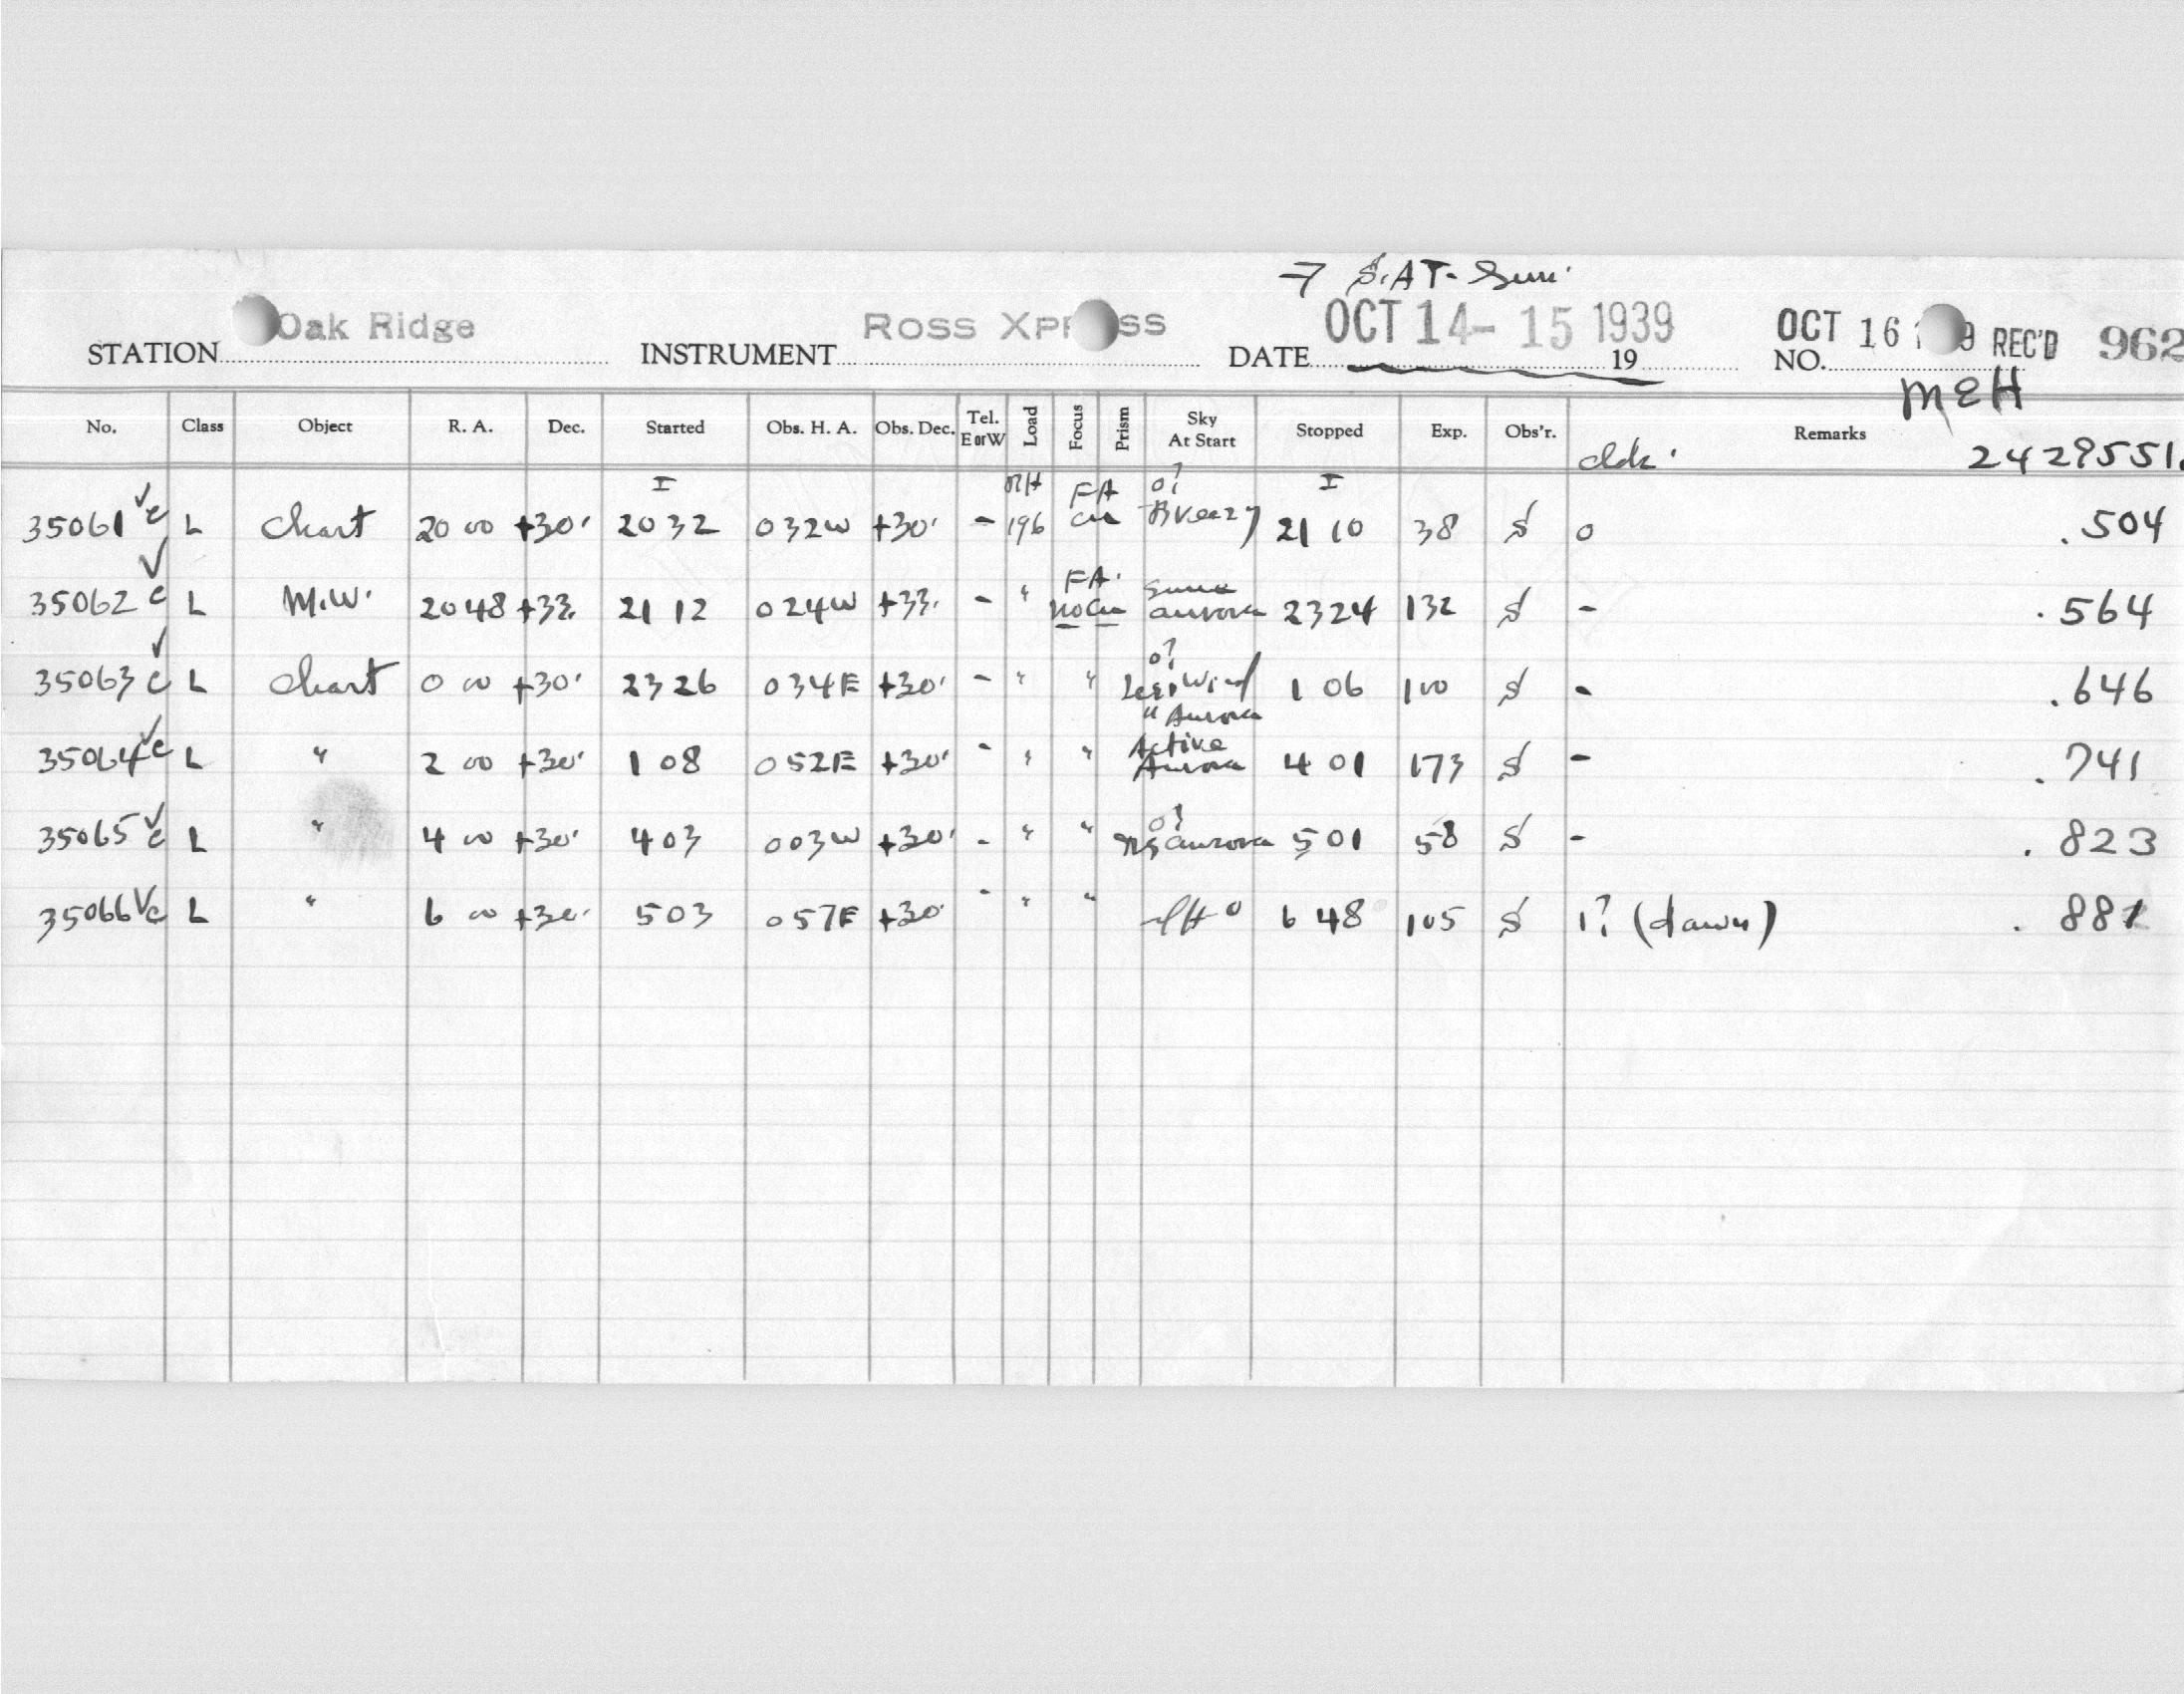 S. AT- Sun.
STATION Oak Ridge INSTRUMENT ROSS XPRESS DATE OCT 14-15 1939 19 OCT 16 REC'D NO. 962
MEH
No. Class Object R. A. Dec. Started Obs. H. A. Obs. Dec. Tel. E or W Load Focus Prism Sky At Start Stopped Exp. Obs'r. Remarks
2429551.
35061 c L Chart 20 00 +30° I 20 32 0 32W +30° - 196 FA o? Breezy I 21 10 38 S 0 .504
35062 c L M.W. 20 48 +33° 21 12 0 24W +33° - " FA. Some aurora 23 24 132 S - .564
35063 c L Chart 0 00 +30° 23 26 0 34E +30° - " " o? Less Wind " Aurora 1 06 100 S - .646
35064 c L " 2 00 +30° 1 08 0 52E +30° - " " Active Aurora 4 01 173 S - .741
35065 c L " 4 00 +30° 4 03 0 03W +30° - " " o? aurora 5 01 58 S - .823
35066 c L " 6 00 +30° 5 03 0 57E +30° - " " 0 6 48 105 S 1? (dawn) .881